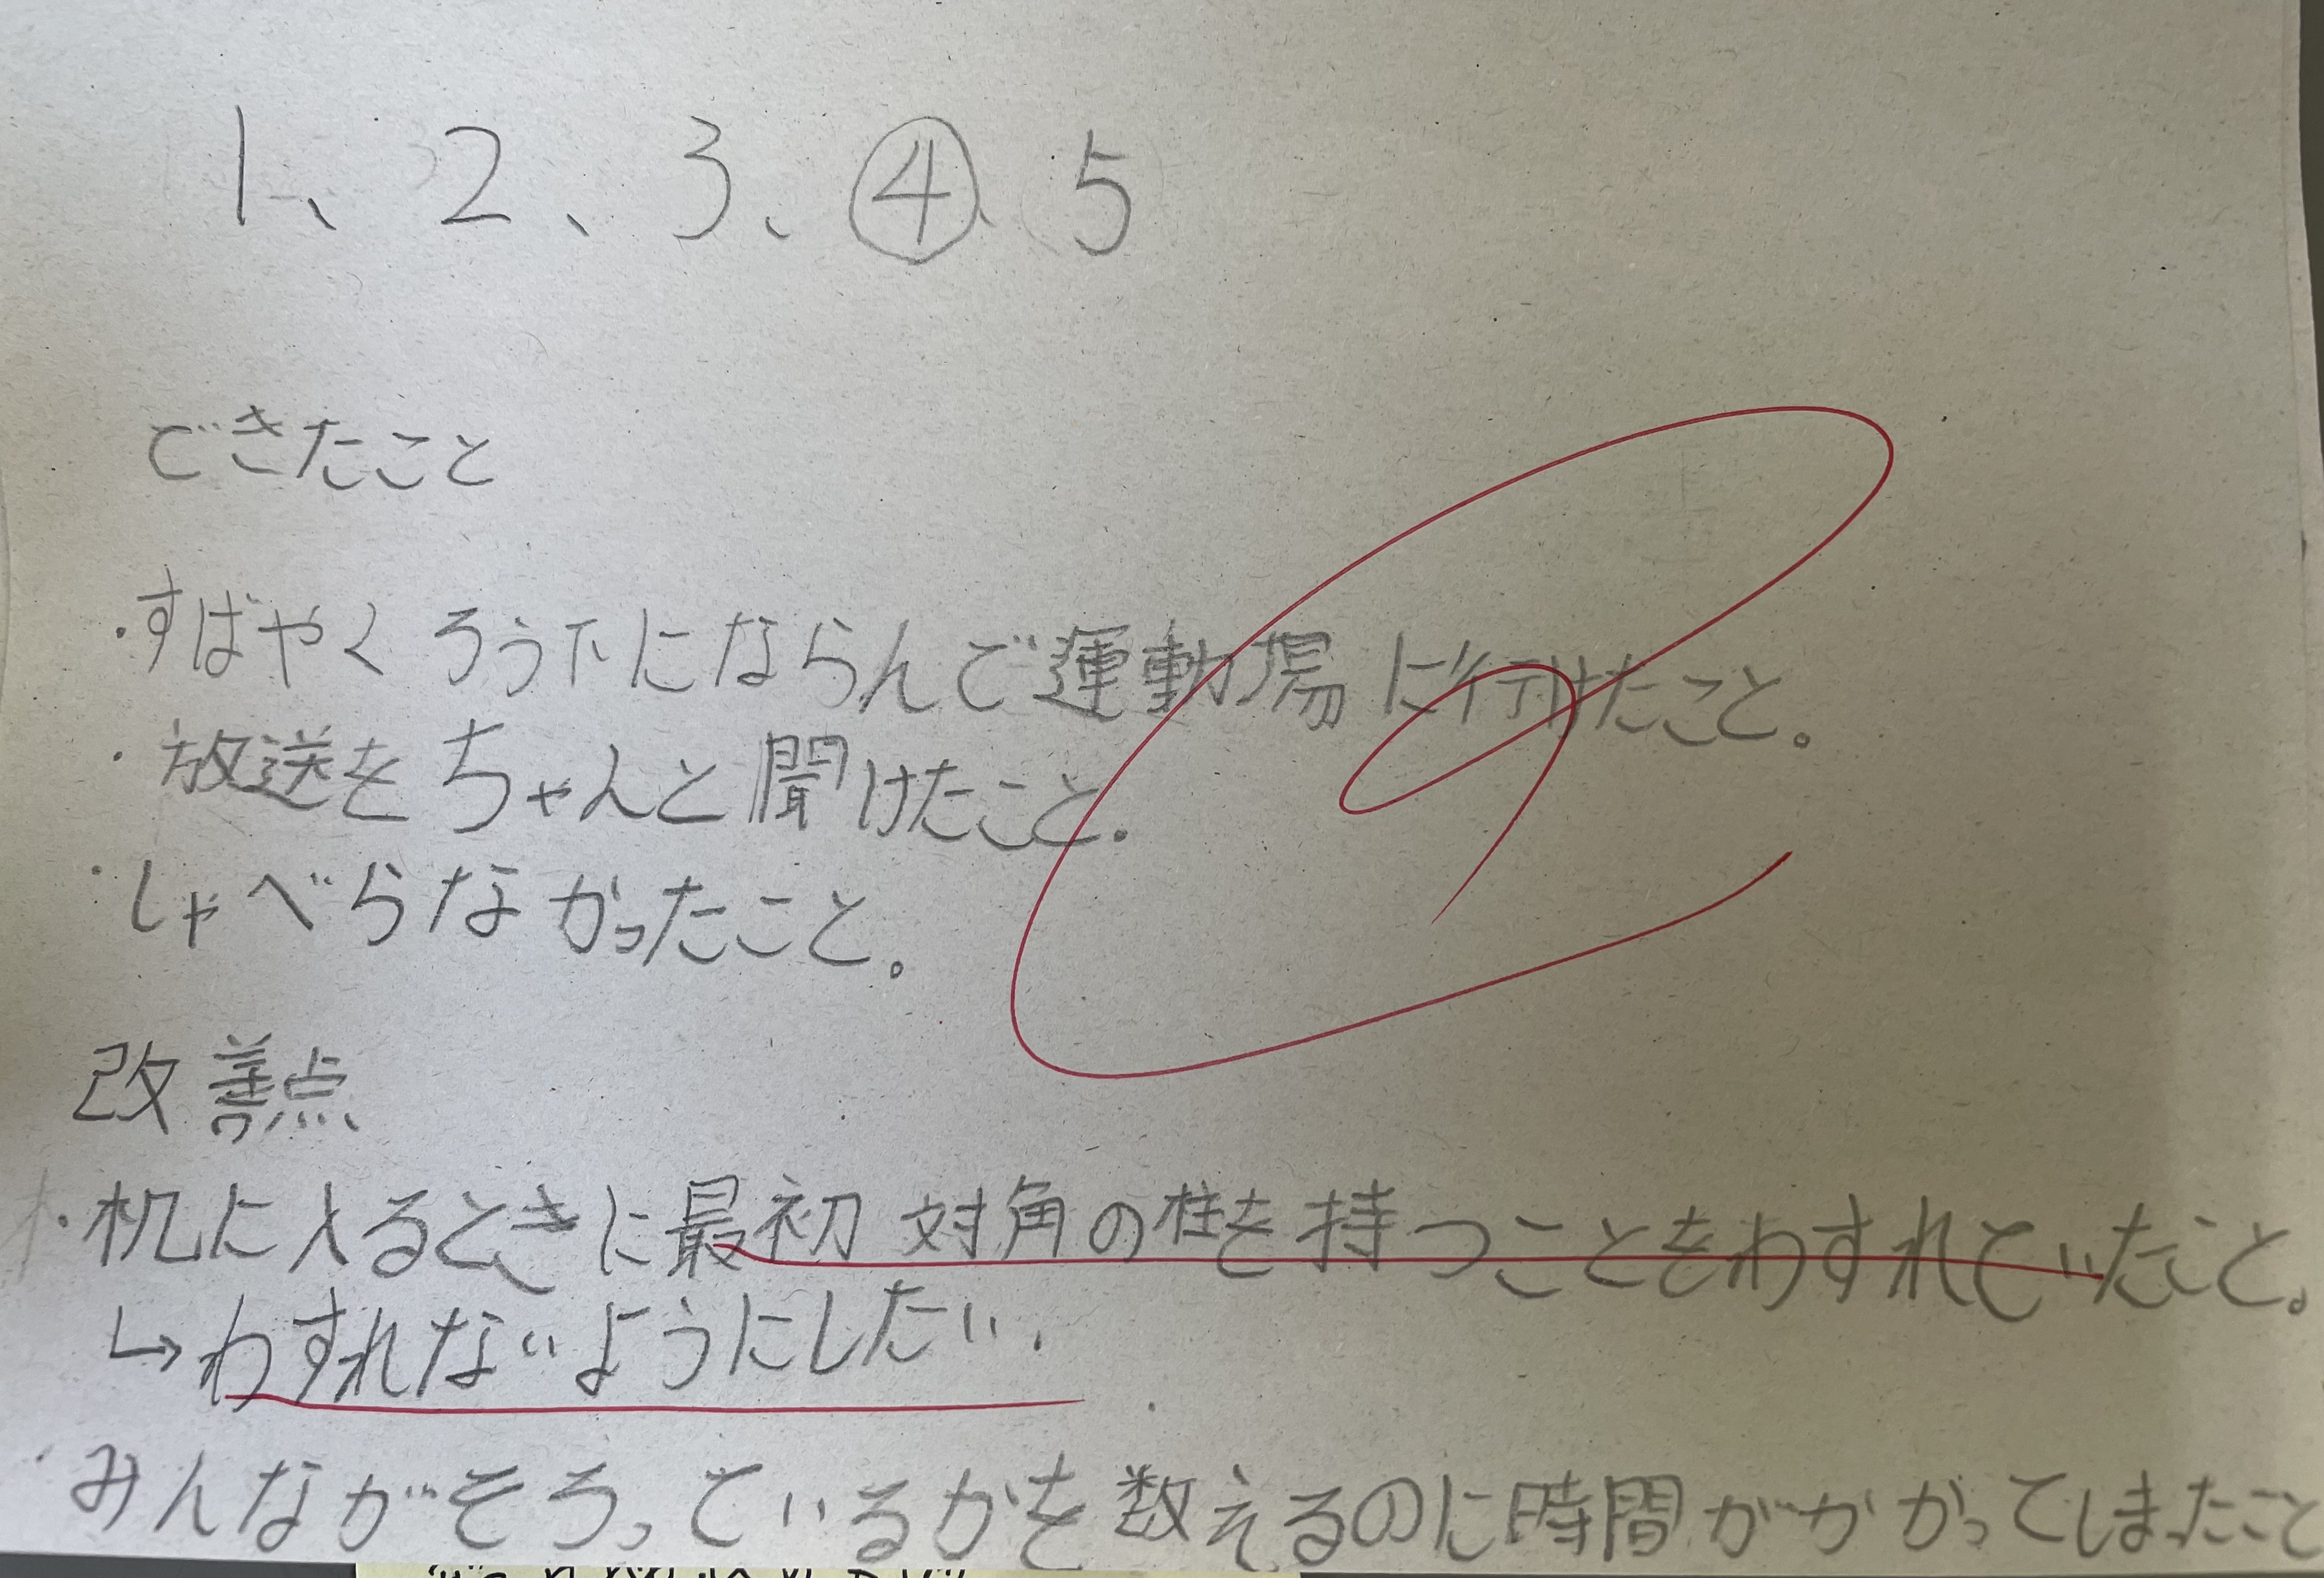 1、2、3、④、5
できたこと
・すばやくろう下にならんで運動場に行けたこと。
・放送をちゃんと聞けたこと。
・しゃべらなかったこと。
改善点
・机に入るときに最初対角の柱を持つことをわすれていたこと。
↳わすれないようにしたい。
・みんながそろっているかを数えるのに時間がかかってしまったこと